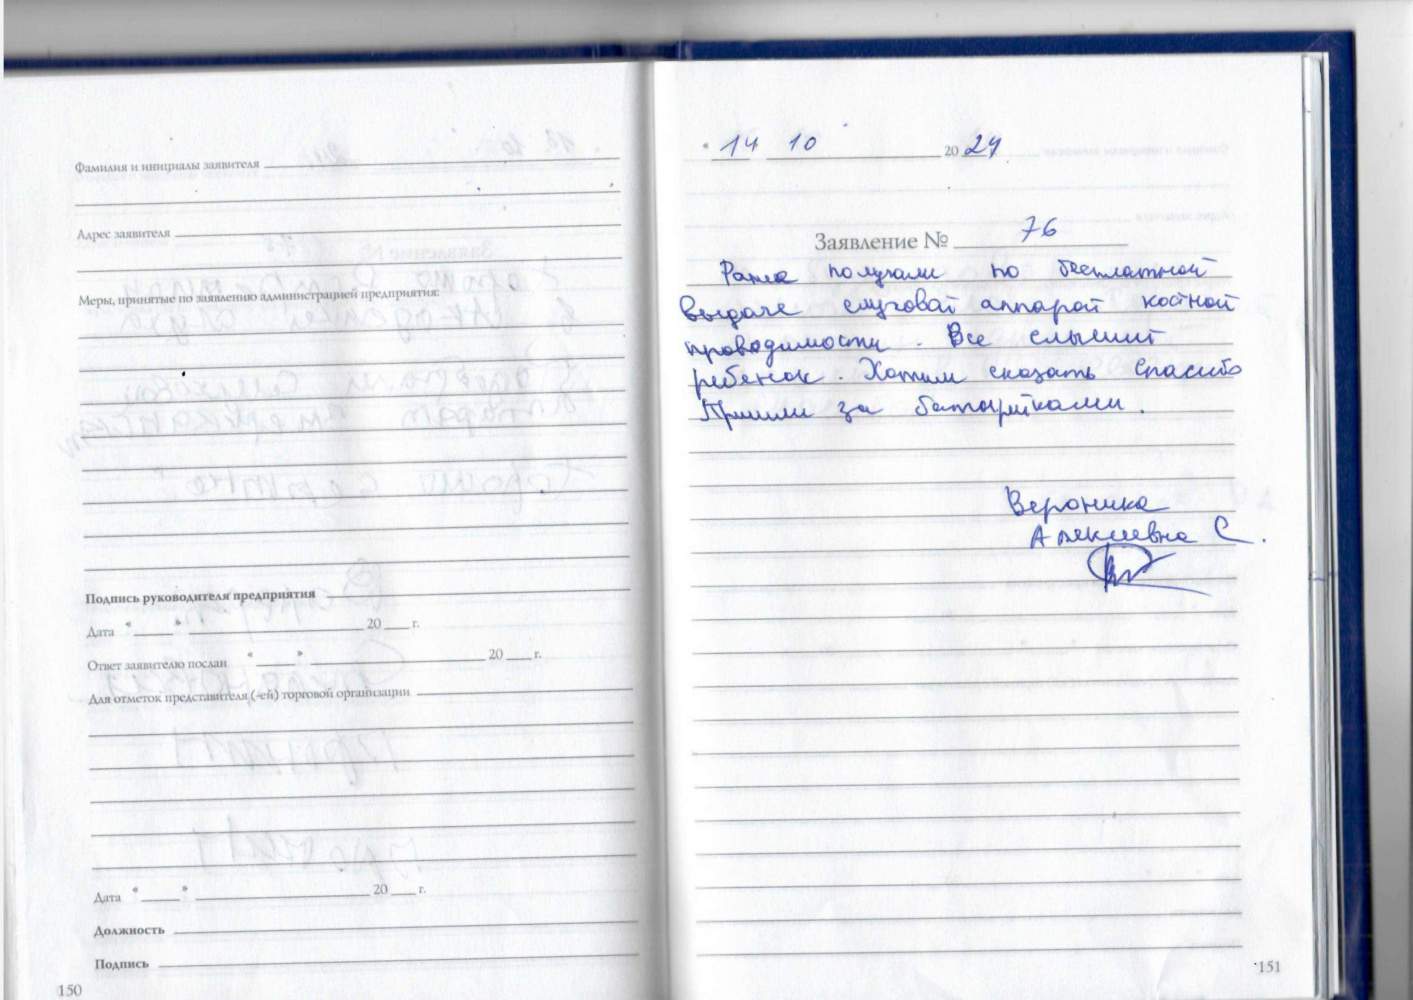 Фамилия и инициалы заявителя
Адрес заявителя
Меры, принятые по заявлению администрацией предприятия:
Подпись руководителя предприятия
Дата « » 20 г.
Ответ заявителю послан « » 20 г.
Для отметок представителя (-ей) торговой организации
Дата « » 20 г.
Должность
Подпись
150
" 14 10 20 24
Заявление № 76
Ранее получали по бесплатной
выдаче слуховой аппарат костной
проводимости. Все слышит
ребенок. Хотим сказать спасибо
Пришли за батарейками.
Вероника
Алексеевна С.
151